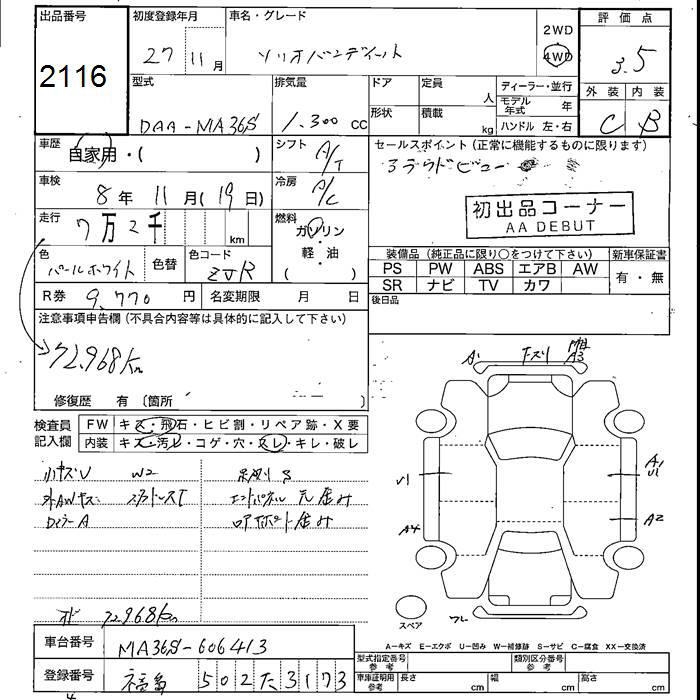 出品番号
2116
初度登録年月
27 11月
車名・グレード
ソリオバンディット
2WD
4WD
評価点
3.5
外装 内装
C B
型式
DAA-MA36S
排気量
1.300 CC
ドア
形状
定員 人
積載 kg
ディーラー・並行
モデル年式 年
ハンドル 左・右
車歴
自家用・( )
シフト
A/T
セールスポイント (正常に機能するものに限ります)
車検
8年 11月(19日)
冷房
A/C
初出品コーナー
AA DEBUT
走行
7万2千 km
燃料
ガソリン
・
軽・油
( )
色
パールホワイト
色替
色コード
ZVR
装備品 (純正品に限り○をつけて下さい)
新車保証書
PS PW ABS エアB AW
有・無
SR ナビ TV カワ
R券 9,770 円
名変期限 月 日
後日品
注意事項申告欄 (不具合内容等は具体的に記入して下さい)
72,968km
修復歴 有 (箇所
検査員
記入欄
FW キズ・飛石・ヒビ割・リペア跡・X要
内装 キズ・汚レ・コゲ・穴・スレ・キレ・破レ
小キズU W2
外AWキズ
エンドパネル 凡歪み
A1
A3
U1
A1
U1
A4
A2
スペア
72968km
車台番号
MA36S-606413
A-キズ E-エクボ U-凹み W-補修跡 S-サビ C-腐食 XX-交換済
型式指定番号
類別区分番号
登録番号
502 た 3173
車庫証明用
参考
長さ cm 幅 cm 高さ cm